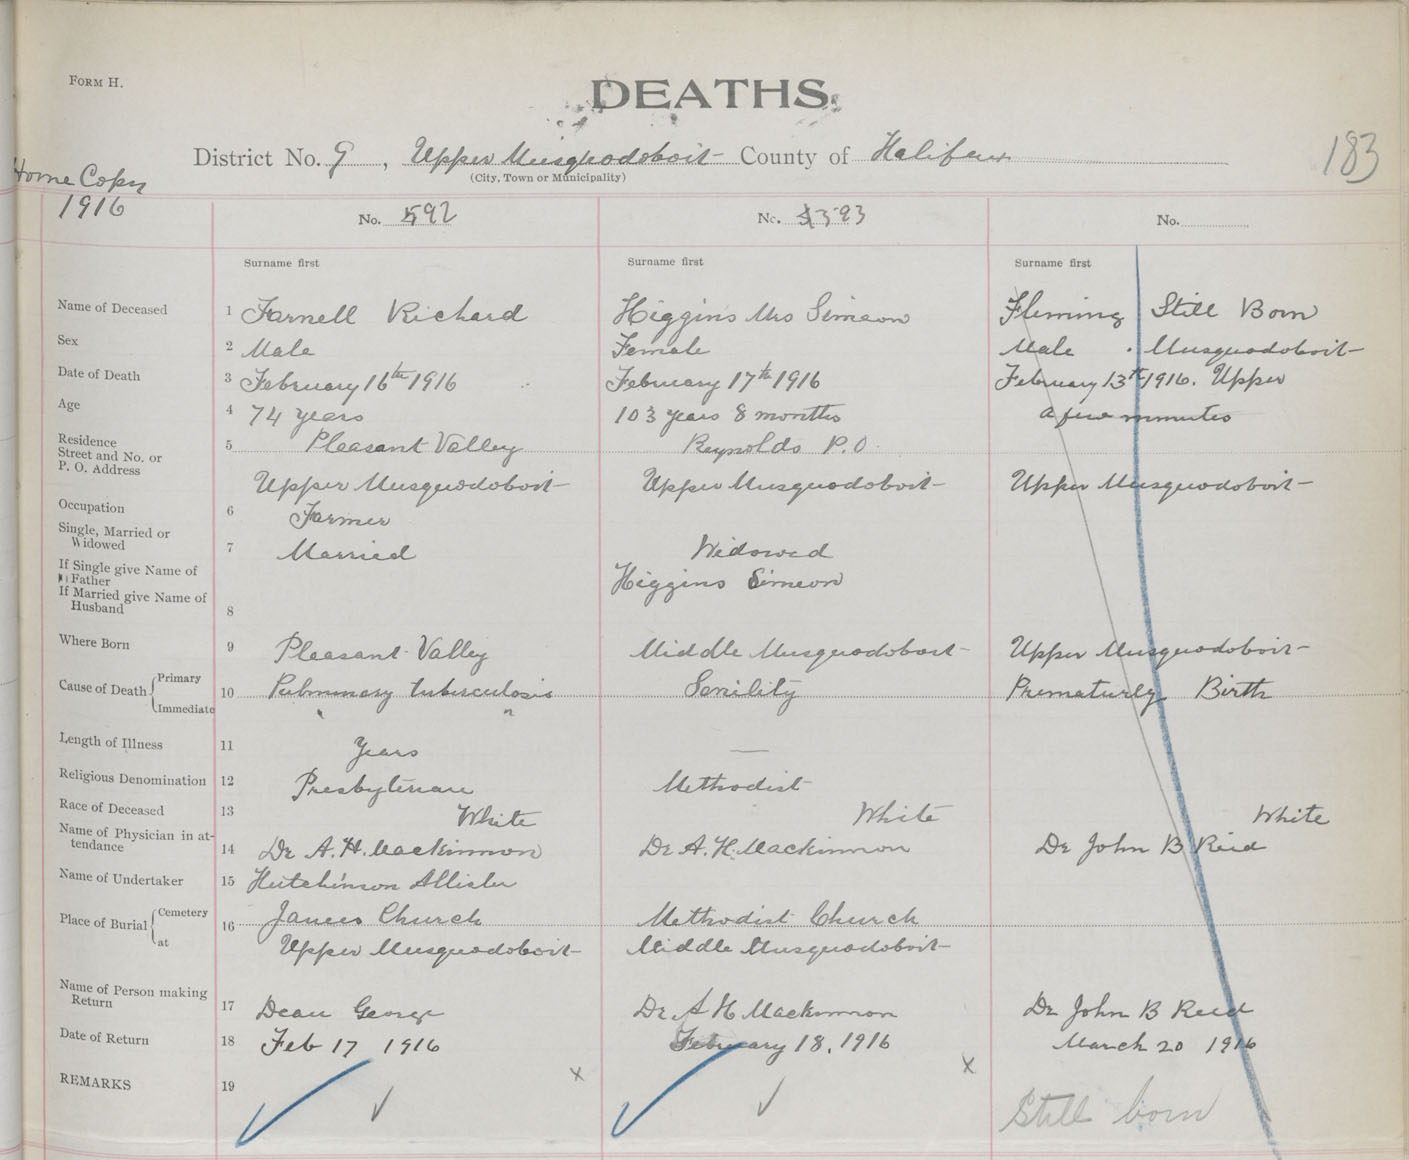 FORM H.
DEATHS.
District No. 9, Upper Musquodoboit County of Halifax
(City, Town or Municipality)
183
Home Copy
1916
No. 592
No. 593
No.
Surname first
Surname first
Surname first
Name of Deceased 1 Farnell Richard
Higgins Mrs Simeon
Fleming Still Born
Sex 2 Male
Female
Male . Musquodoboit
Date of Death 3 February 16th 1916
February 17th 1916
February 13th 1916. Upper
Age 4 74 years
103 years 8 months
a few minutes
Residence
Street and No. or
P. O. Address
5 Pleasant Valley
Upper Musquodoboit
Reynolds P.O.
Upper Musquodoboit
Upper Musquodoboit
Occupation 6 Farmer
Single, Married or
Widowed
7 Married
Widowed
If Single give Name of
Father
If Married give Name of
Husband
8
Higgins Simeon
Where Born 9 Pleasant Valley
Middle Musquodoboit
Upper Musquodoboit
Cause of Death Primary
Immediate
10 Pulmonary tuberculosis
" "
Senility
Prematurely Birth
Length of Illness 11 Years
—
Religious Denomination 12 Presbyterian
Methodist
Race of Deceased 13 White
White
White
Name of Physician in at-
tendance
14 Dr A. H. Mackinnon
Dr A. H. Mackinnon
Dr John B Reid
Name of Undertaker 15 Hutchinson Allister
Place of Burial Cemetery
at
16 James Church
Upper Musquodoboit
Methodist Church
Middle Musquodoboit
Name of Person making
Return
17 Dean George
Dr A H Mackinnon
Dr John B Reid
Date of Return 18 Feb 17 1916
February 18, 1916
March 20 1916
REMARKS 19
x
x
Still born